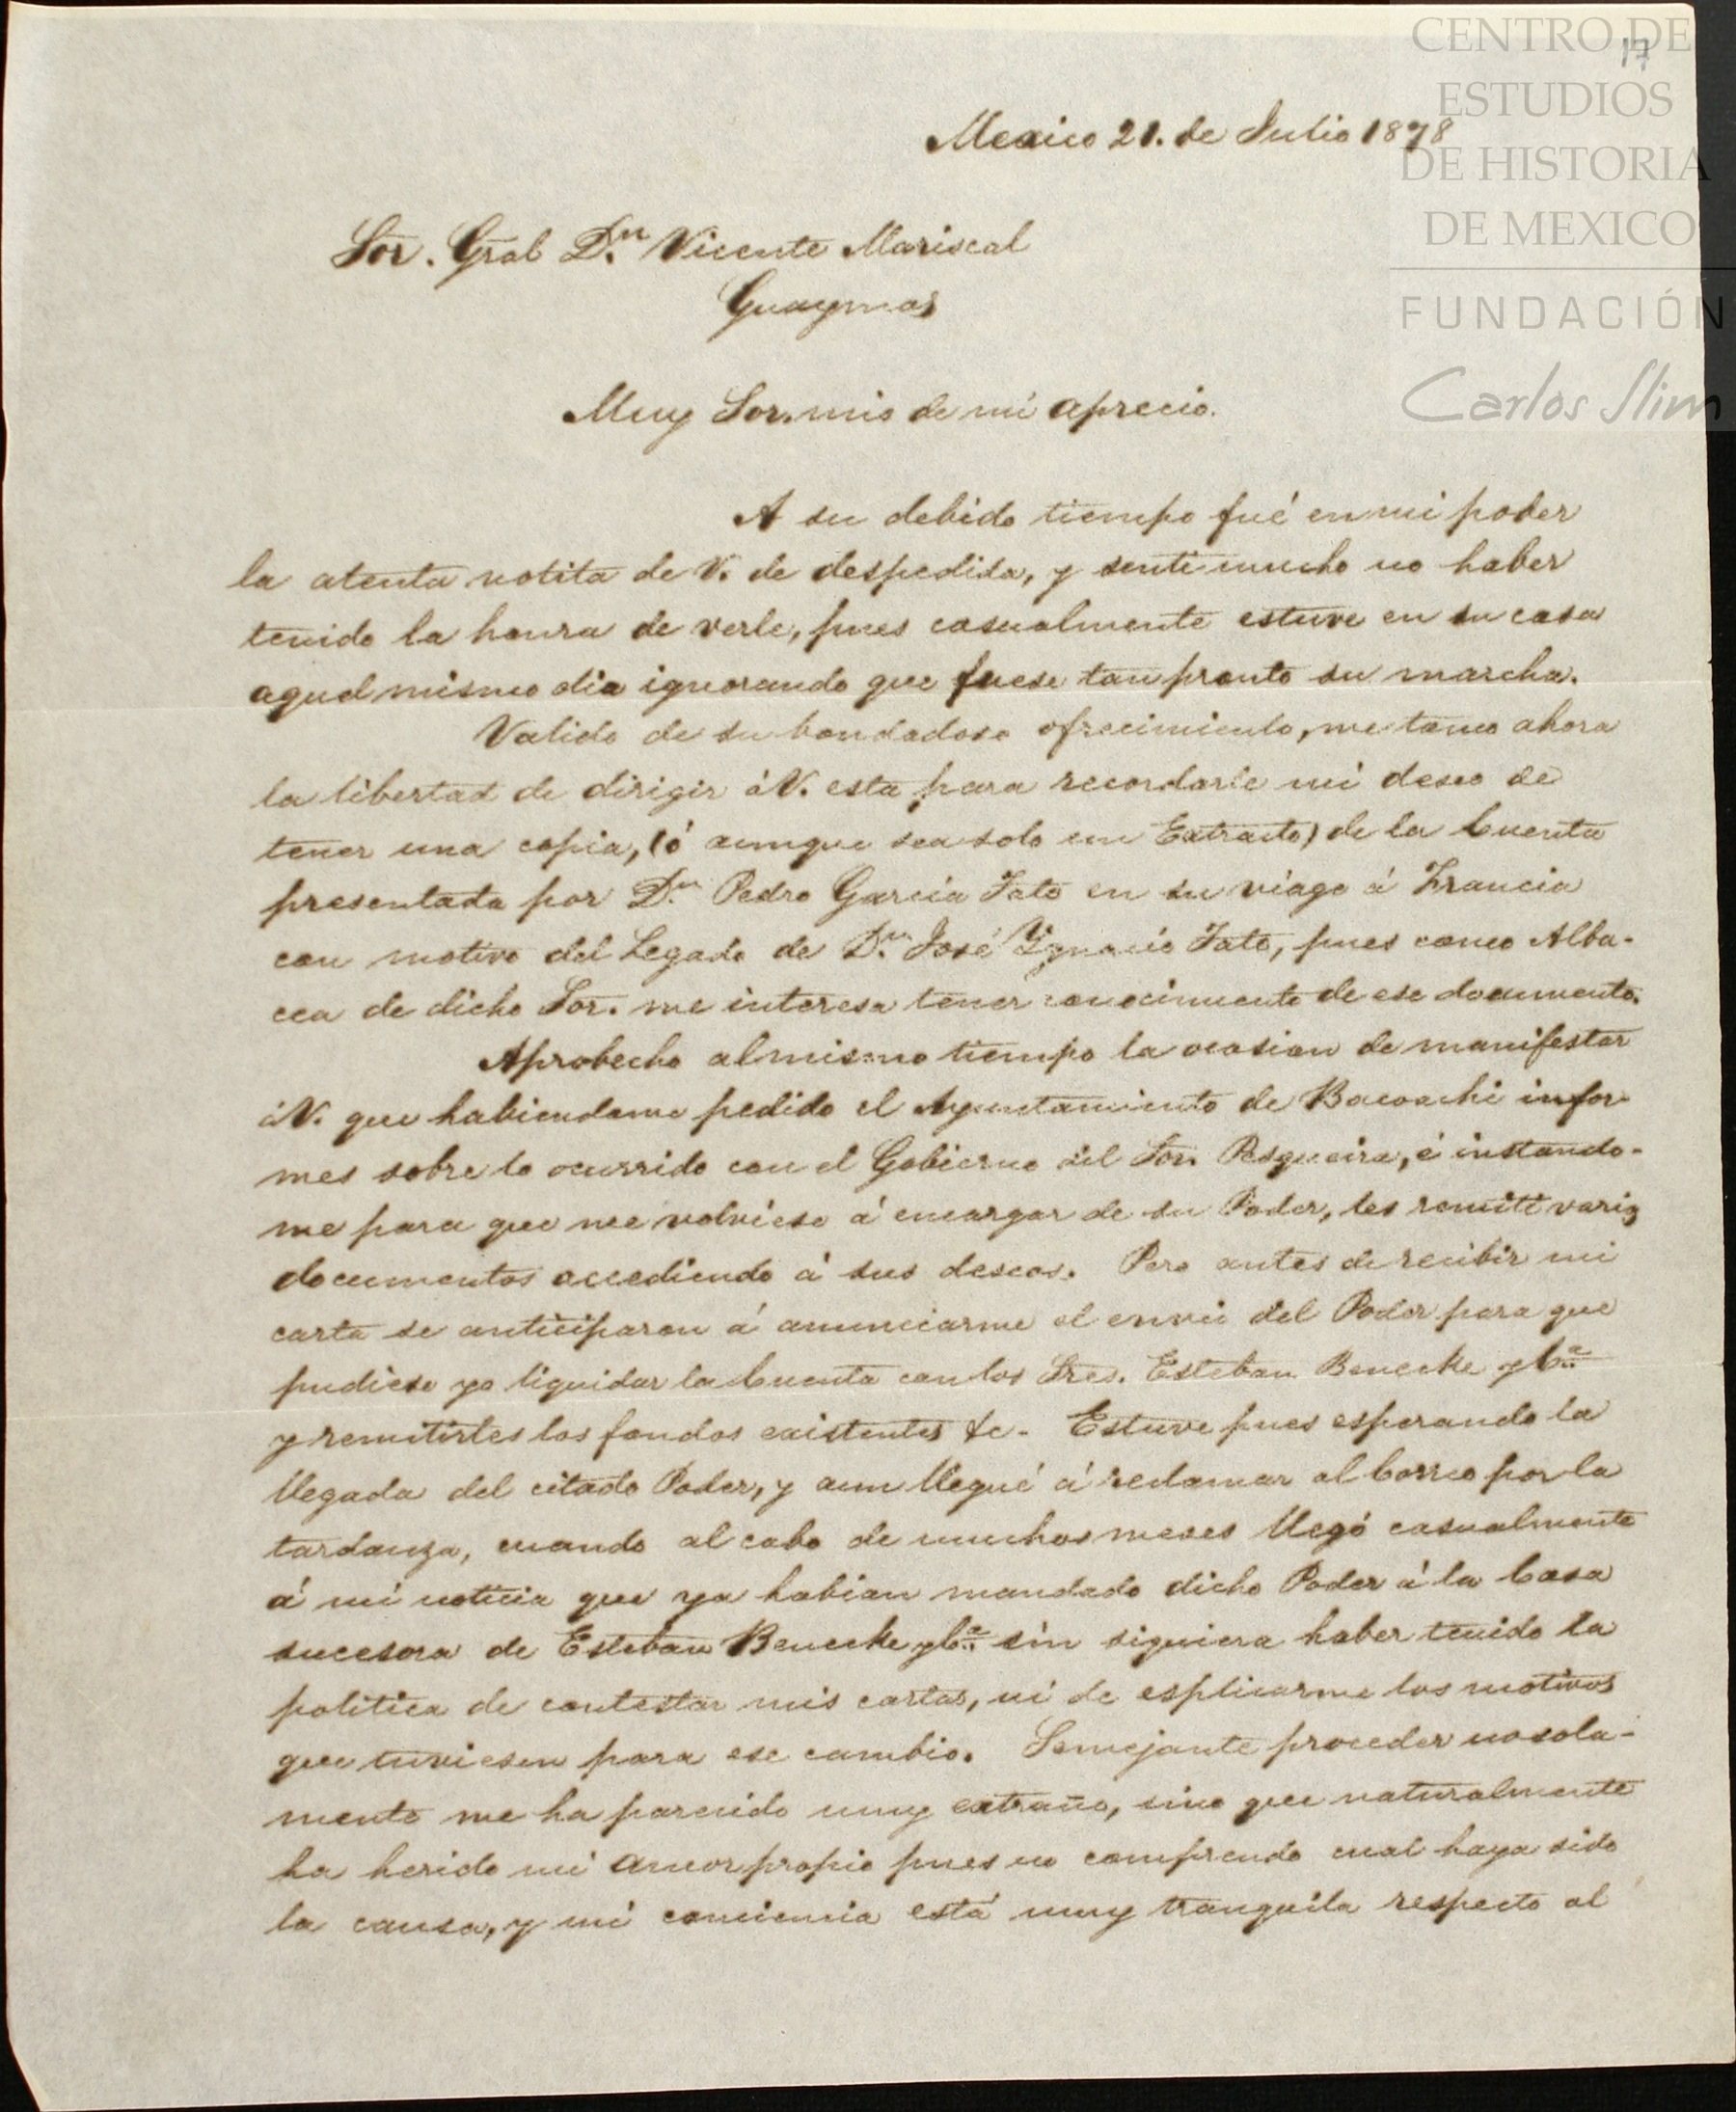 CENTRO DE
ESTUDIOS
DE HISTORIA
DE MEXICO
FUNDACIÓN
Carlos Slim
17
Mexico 21. de Julio 1878
Sor. Gral Dn. Vicente Mariscal
Guaymas
Muy Sor. mio de mi aprecio.
A su debido tiempo fué en mi poder
la atenta notita de V. de despedida, y senti mucho no haber
tenido la honra de verle, pues casualmente estuve en su casa
aquel mismo dia ignorando que fuese tan pronto su marcha.
Valido de su bondadoso ofrecimiento, me tomo ahora
la libertad de dirigir á V. esta para recordarle mi deseo de
tener una copia, (ó aunque sea solo un Extracto) de la Cuenta
presentada por Dn. Pedro Garcia Tato en su viage á Francia
con motivo del Legado de Dn. José Ygnacio Tato, pues como Alba-
cea de dicho Sor. me interesa tener conocimiento de ese documento.
Aprobecho al mismo tiempo la ocasion de manifestar
á V. que habiendome pedido el Ayuntamiento de Bacoachi infor-
mes sobre lo ocurrido con el Gobierno del Sor. Pesqueira, é instando-
me para que me volviese á encargar de su Poder, les remiti varios
documentos accediendo á sus deseos. Pero antes de recibir mi
carta se anticiparon á anunciarme el envio del Poder para que
pudiese yo liquidar la Cuenta con los Sres. Esteban Benecke y Ca.
y remitirles los fondos existentes &c. Estuve pues esperando la
llegada del citado Poder, y aun llegué á reclamar al Correo por la
tardanza, cuando al cabo de muchos meses llegó casualmente
á mi noticia que ya habian mandado dicho Poder á la Casa
sucesora de Esteban Benecke y Ca. sin siquiera haber tenido la
politica de contestar mis cartas, ni de esplicarme los motivos
que tuviesen para ese cambio. Semejante proceder no sola-
mente me ha parecido muy extraño, sino que naturalmente
ha herido mi amor propio pues no comprendo cual haya sido
la causa, y mi conciencia está muy tranquila respecto al